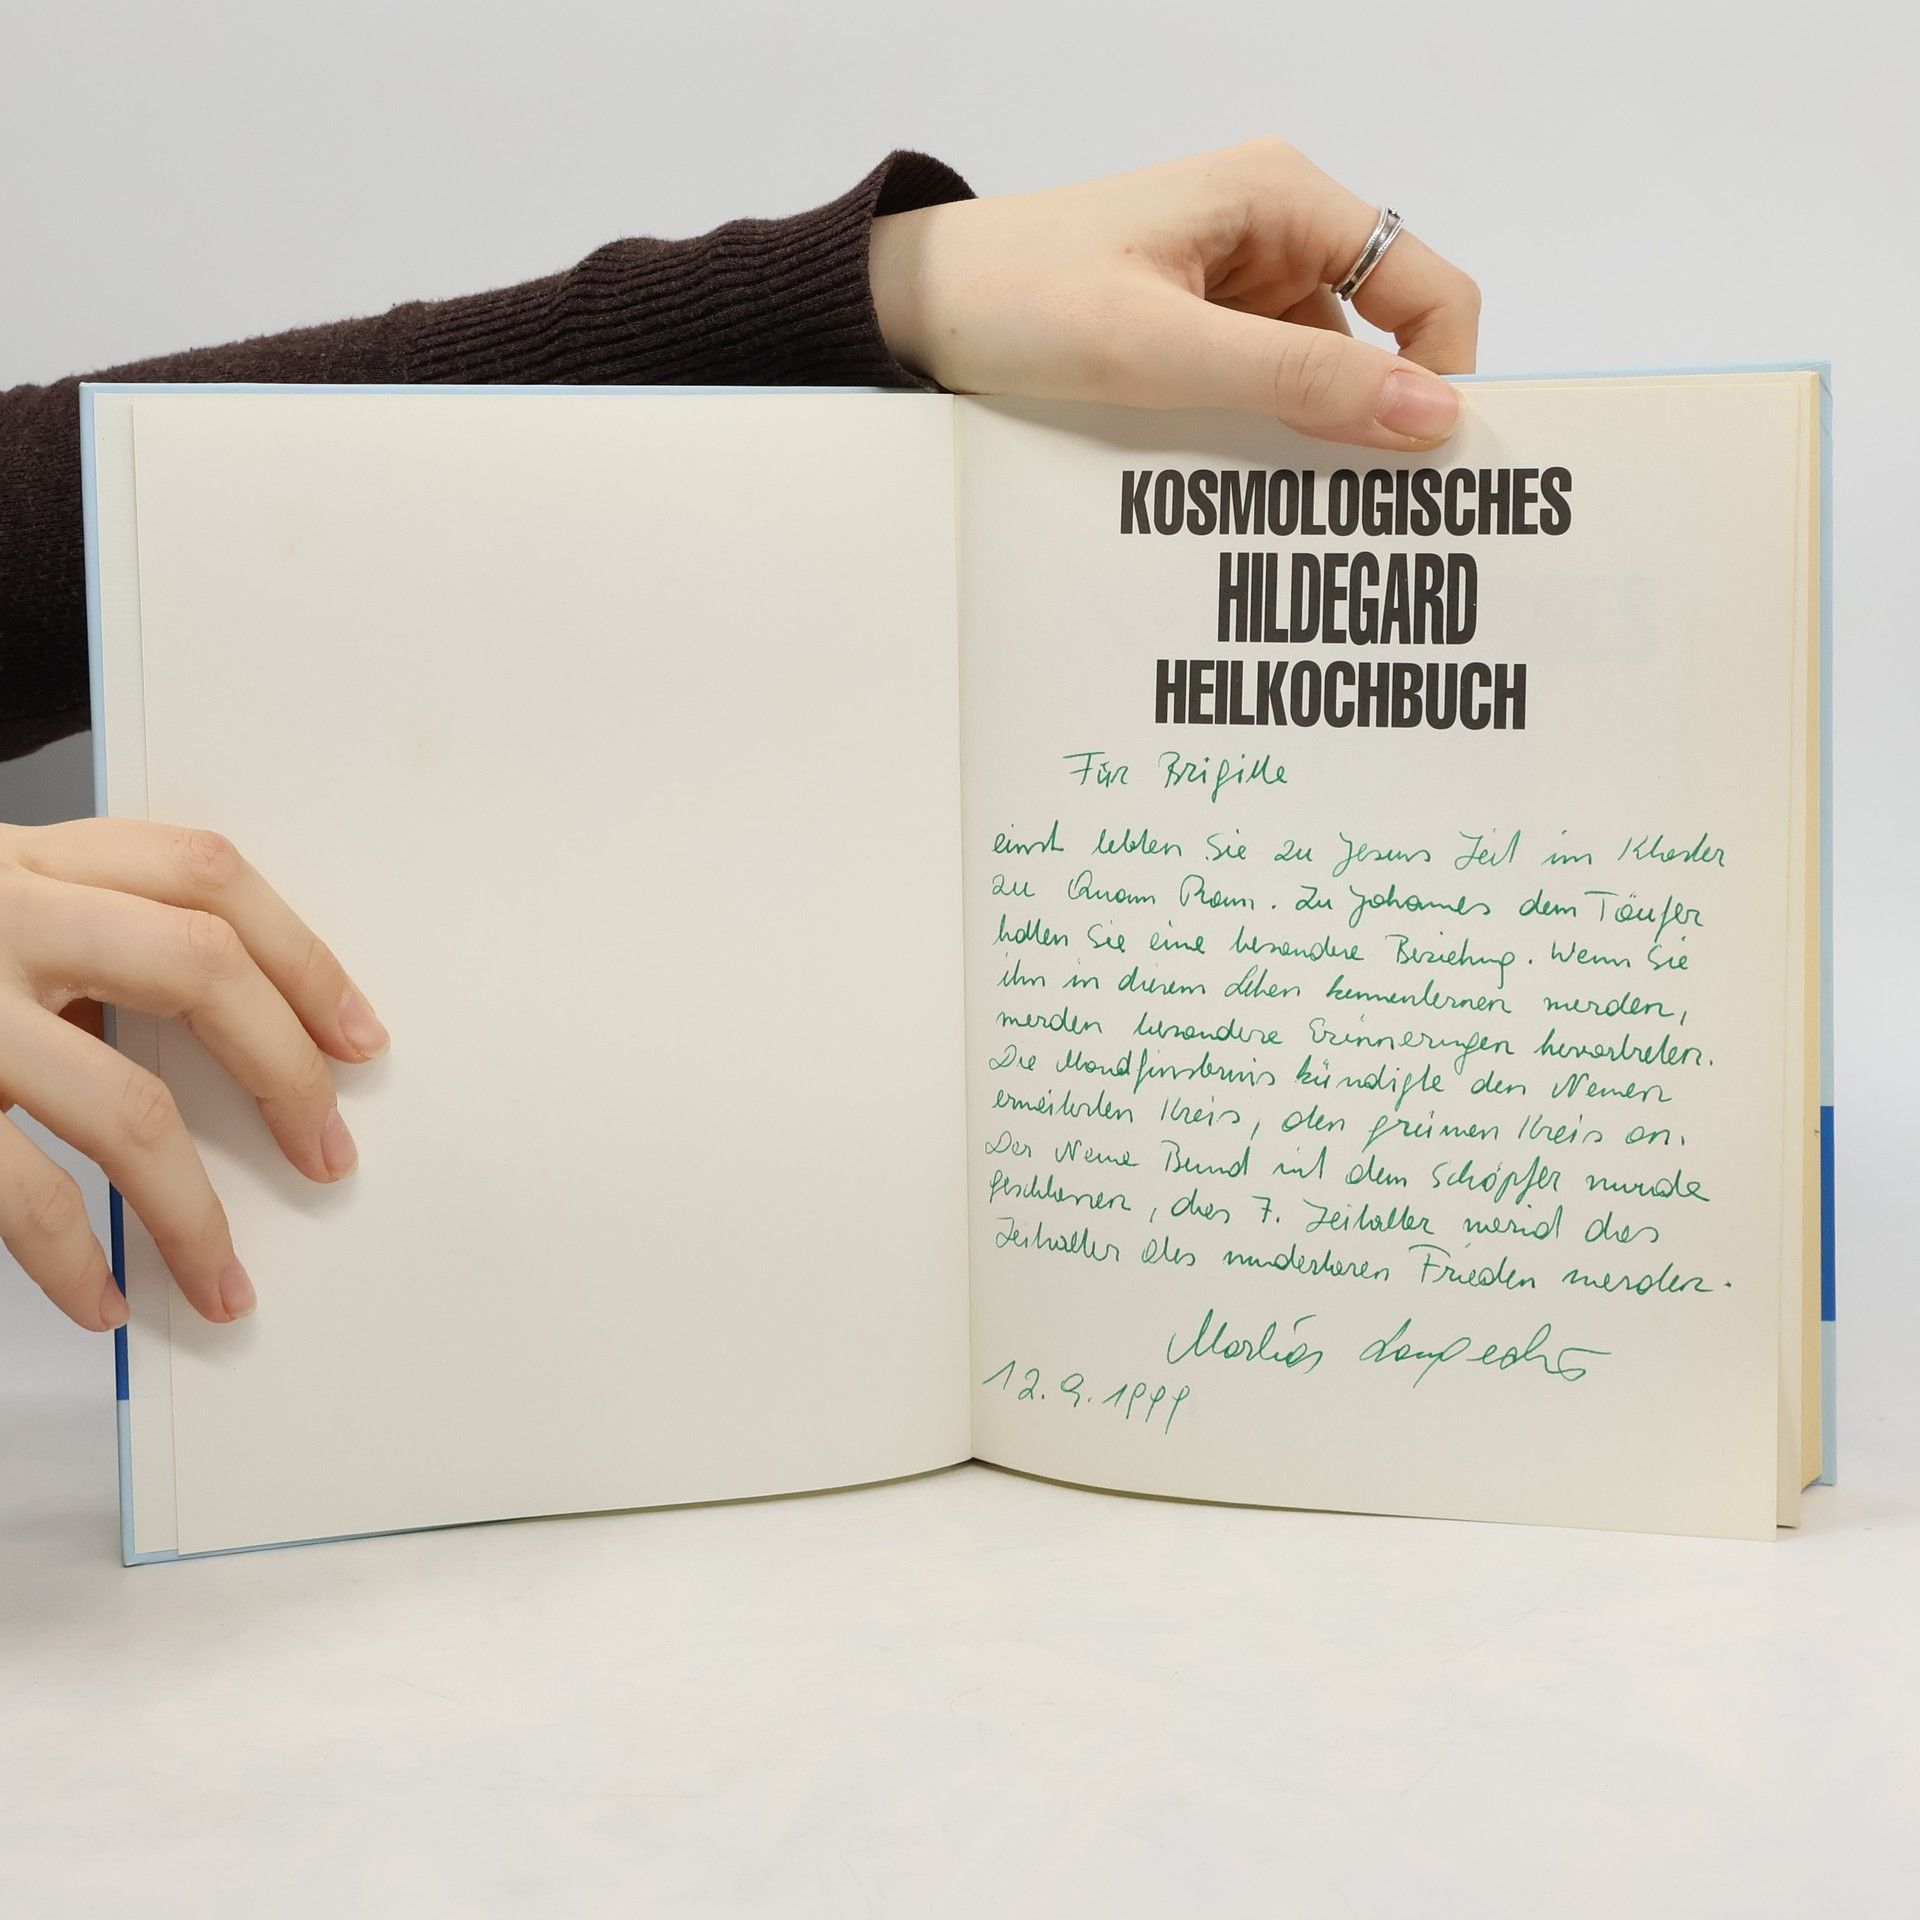 KOSMOLOGISCHES
HILDEGARD
HEILKOCHBUCH
Für Brigitte
einst lebten Sie zu Jesus Zeit im Kloster
zu Qnam Ram. Zu Johannes dem Täufer
hatten Sie eine besondere Beziehung. Wenn Sie
ihn in diesem Leben kennenlernen werden,
werden besondere Erinnerungen hervortreten.
Die Mondfinsternis kündigte den Neuen
erweiterten Kreis, den grünen Kreis an.
Der Neue Bund mit dem Schöpfer wurde
geschlossen, das 7. Zeitalter wird das
Zeitalter des wunderbaren Frieden werden.
12.9.1999